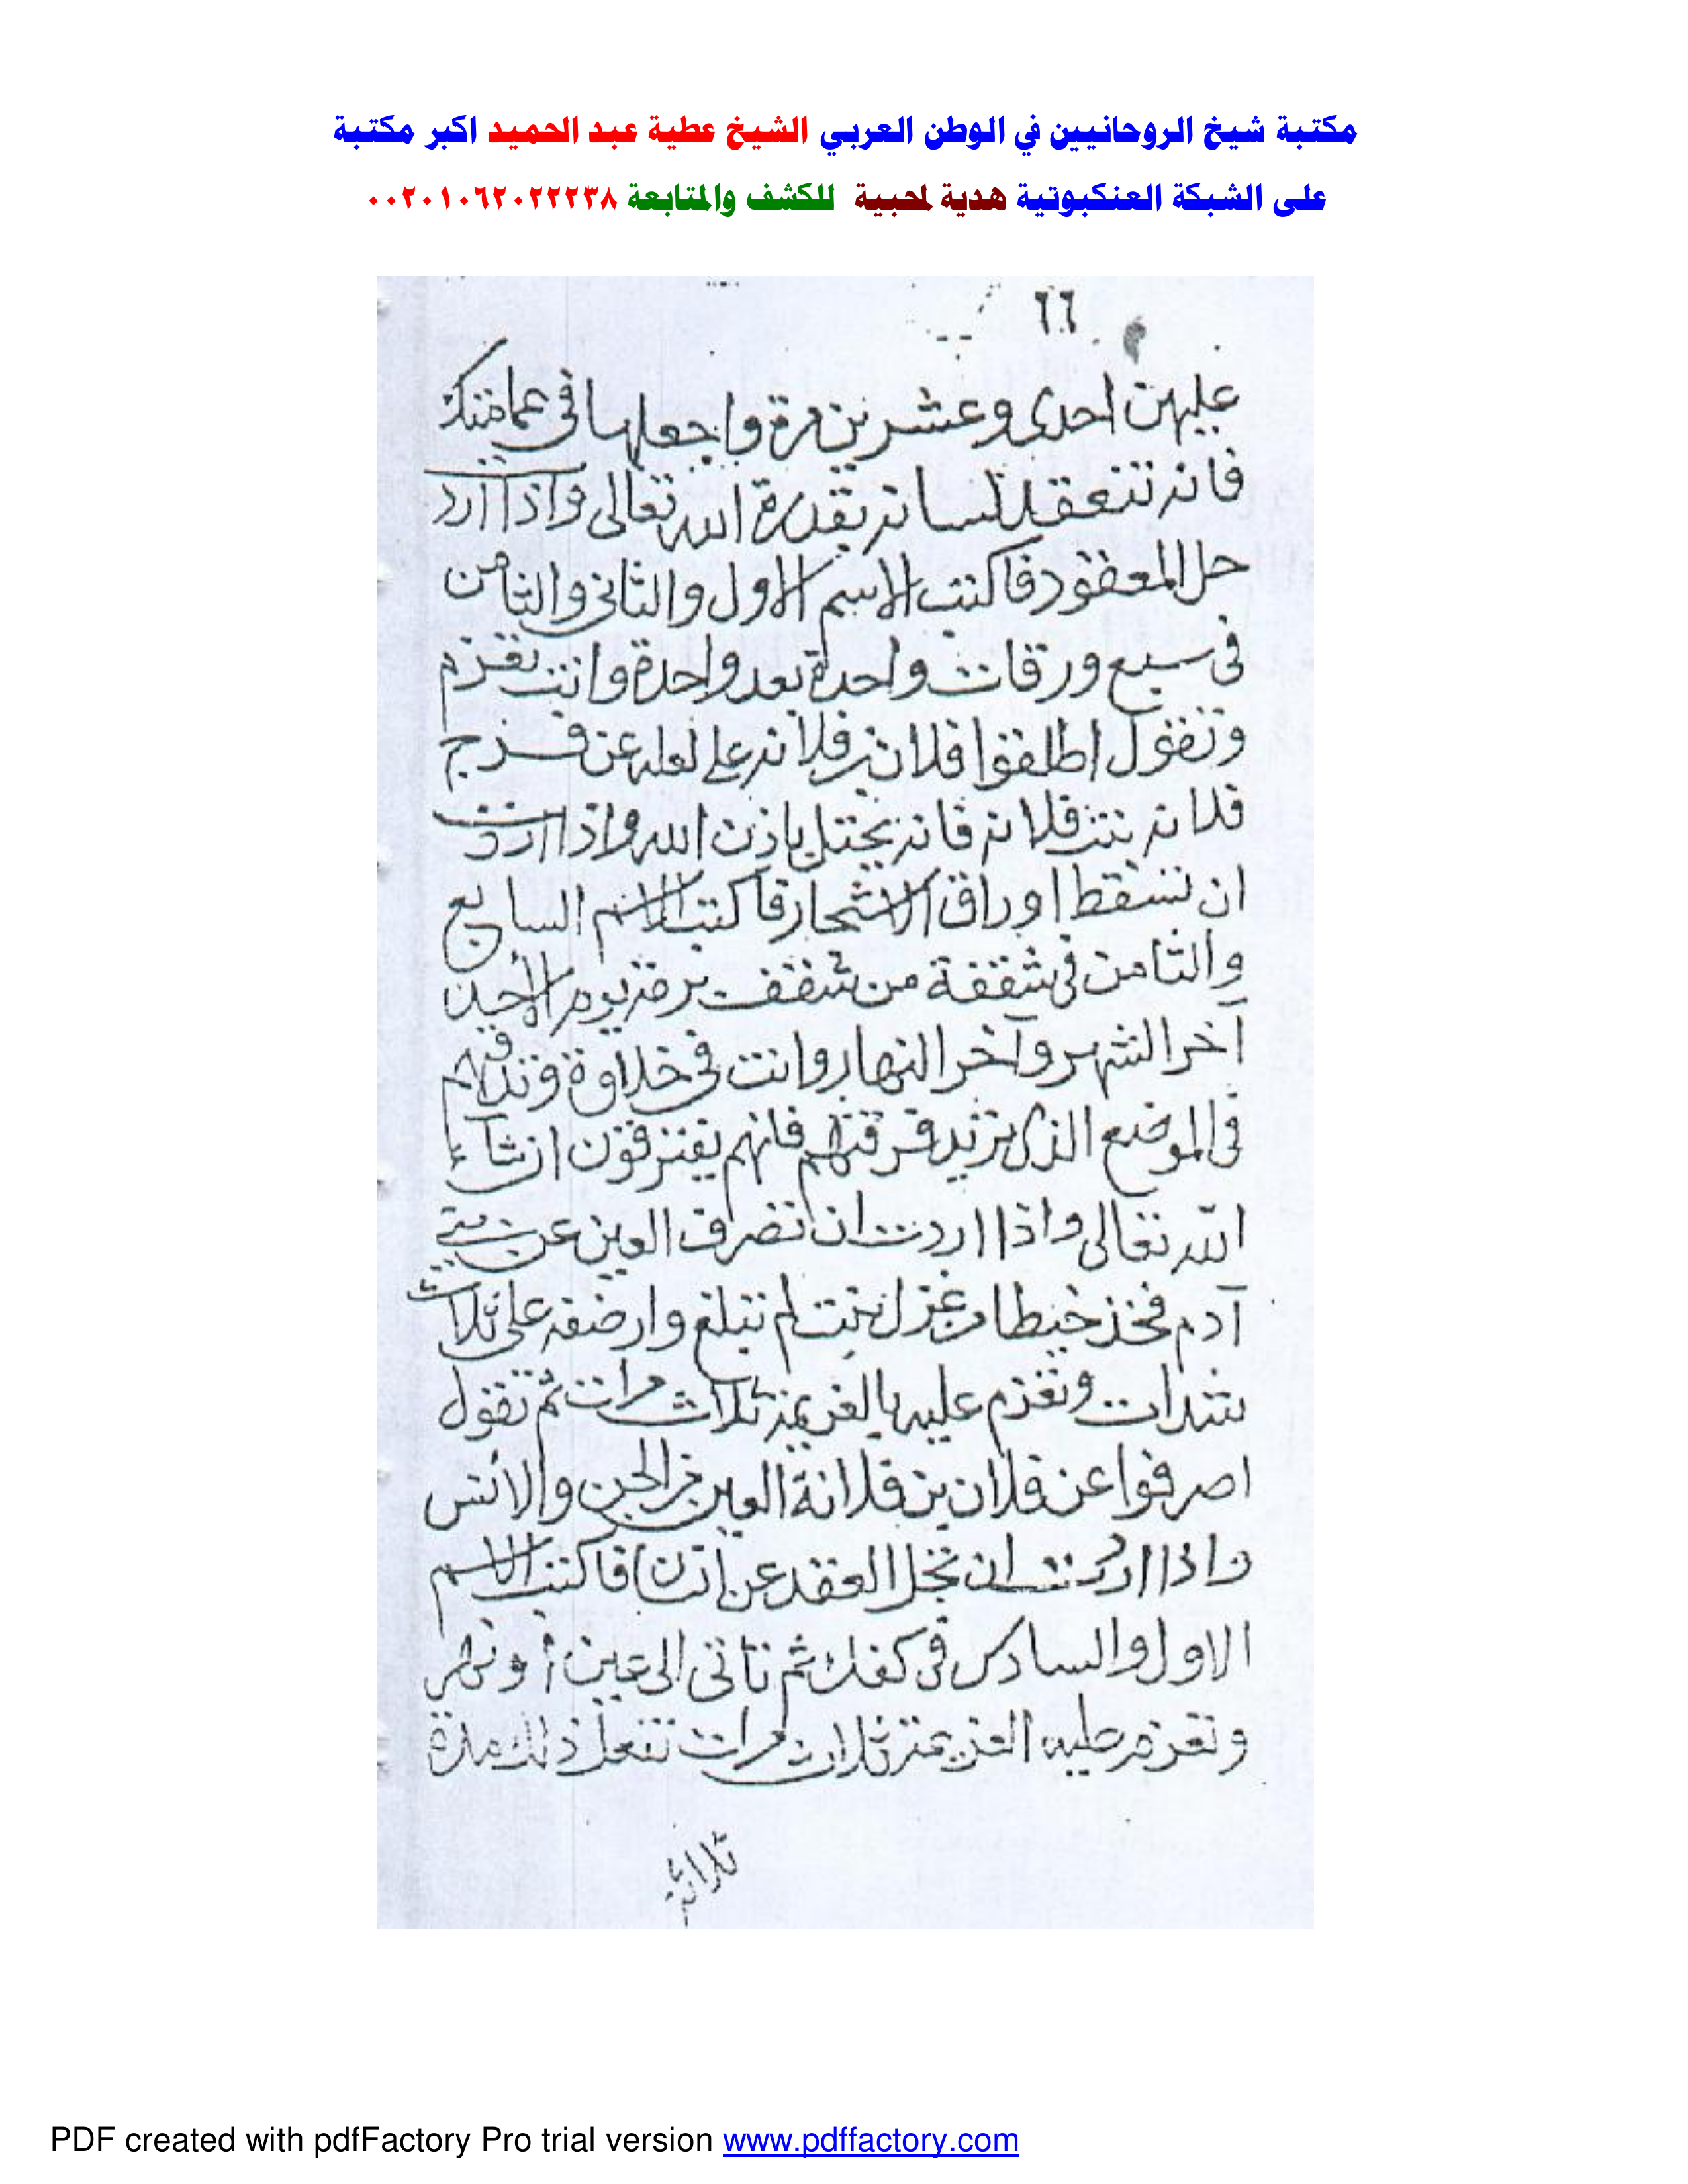 مكتبة شيخ الروحانيين في الوطن العربي الشيخ عطية عبد الحميد اكبر مكتبة
على الشبكة العنكبوتية هدية لمحبية للكشف والمتابعة ٠٠٢٠١٠٦٢٠٢٢٢٣٨
٦٦
عليهن احدى وعشرين مرة واجعلها فى عمامتك
فانه تنعقد لسانه بقدرة الله تعالى واذا ارد
حل المعقود فاكتب الاسم الاول والثانى والثامن
فى سبع ورقات واحدة بعد واحدة وانت تعزم
وتقول اطلقوا فلان بن فلانه عن فرج
فلانه بنت فلانه فانه يحتل باذن الله واذا اردت
ان تسقط اوراق الاشجار فاكتب الاسم السابع
والثامن فى شقفة من شقف يوم الاحد
آخر الشهر وآخر النهار وانت فى خلاوة
فى الموضع الذى تريد فرقتهم فانهم يفترقون ان شآء
الله تعالى واذا اردت ان تصرف العين عن بنى
آدم فخذ خيطا من غزل بنت لم تبلغ وارضفه على ثلاث
شدات وتعزم عليه بالعزيمة ثلاث مرات ثم تقول
اصرفوا عن فلان بن فلانة العين من الجن والانس
واذا اردت ان تحل العقد عن اتان فاكتب الاسم
الاول والسادس فى كفك ثم تاتى الى عين أو نهر
وتعزم عليه العزيمة ثلاث مرات تفعل ذلك مدة
ثلاثة
PDF created with pdfFactory Pro trial version www.pdffactory.com